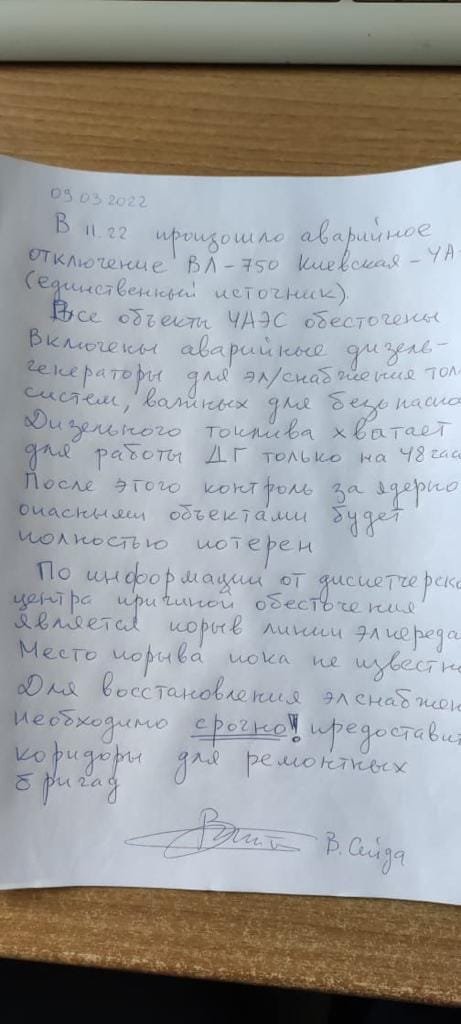 09.03.2022
В 11.22 произошло аварийное
отключение ВЛ-750 Киевская-ЧА
(единственный источник).
Все объекты ЧАЭС обесточены
Включены аварийные дизель-
генераторы для эл/снабжения тол
систем, важных для безопасно
Дизельного топлива хватает
для работы ДГ только на 48 час
После этого контроль за ядерно
опасными объектами будет
полностью потерен
По информации от диспетчерско
центра причиной обесточения
является порыв линии эл.переда
Место порыва пока не известн
Для восстановления элснабжен
необходимо срочно! предоставит
коридоры для ремонтных
бригад
В. Сейда